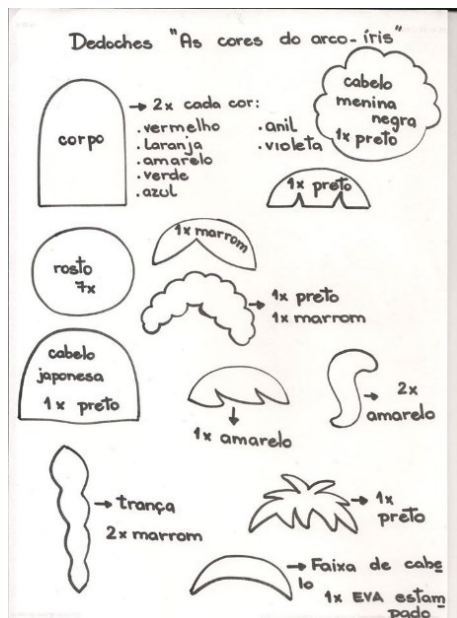 Dedoches "As cores do arco-íris"
corpo
→ 2x cada cor:
.vermelho
.laranja
.amarelo
.verde
.azul
.anil
.violeta
cabelo
menina
negra
1x preto
1x preto
rosto
7x
1x marrom
→ 1x preto
1x marrom
cabelo
japonesa
1x preto
→ 1x amarelo
→ 2x
amarelo
→ trança
2x marrom
→ 1x
preto
→ Faixa de cabe
lo
1x EVA estam
pado